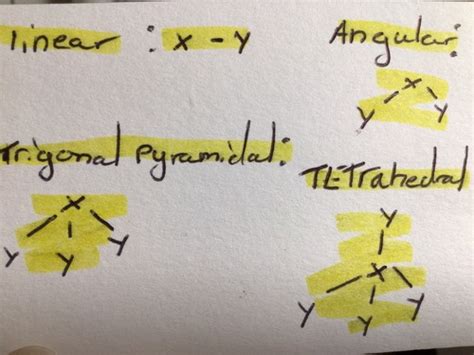 linear : x - y
Angular:
x
y y
Trigonal pyramidal:
x
y y y
TETrahedral
y
x
y y y